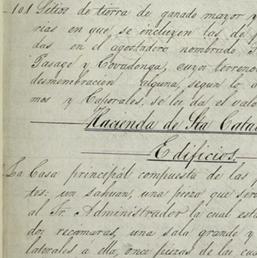 101 Sitios de tierra de ganado mayor y
rias en que se incluyen las de
das en el agostadero nombrado
Pasage y Covadonga, cuyos terreno
desmembracion alguna, segun lo
mos y Caporales, se les da el valo
Hacienda de Sta Cata
Edificios.
La Casa principal compuesta de las
tes: un sahuan, una pieza que ser
al Sr. Administrador la cual est
dos recamaras, una sala grande y
laterales a ella, once piezas de las cua